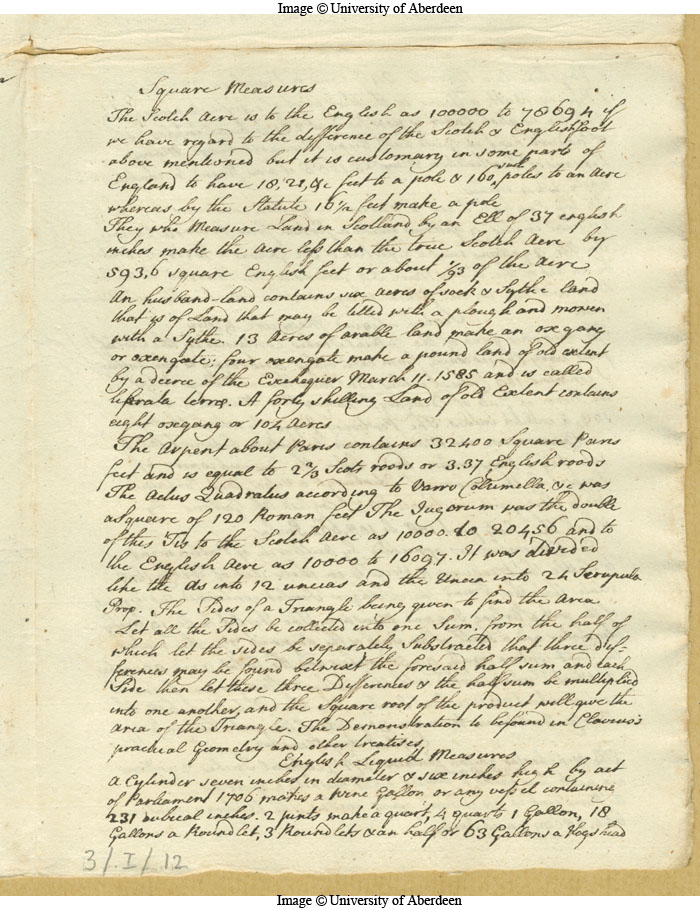 Image © University of Aberdeen
Square Measures
The Scotch Acre is to the English as 100000 to 78694 if
we have regard to the difference of the Scotch & English foot
above mentioned but it is customary in some parts of
England to have 18, 21, &c feet to a pole & 160 such poles to an Acre
whereas by the Statute 16½ feet make a pole
They who Measure Land in Scotland by an Ell of 37 english
inches make the Acre less than the true Scotch Acre by
593,6 square English feet or about 1/93 of the Acre
An husband-land contains six acres of sock & Sythe land
that is of Land that may be tilled with a plough and mowen
with a Sythe. 13 Acres of arable land make an oxgang
or oxengate; four oxengate make a pound land of old extent
by a decree of the Exchequer March 11. 1585 and is called
librata terræ. A forty shilling Land of old Extent contains
eight oxgang or 104 Acres
The Arpent about Paris contains 32400 Square Paris
feet and is equal to 2⅔ Scots roods or 3.37 English roods
The Actus Quadratus according to Varro Collumella, &c was
a Square of 120 Roman feet The Jugerum was the double
of this Tis to the Scotch Acre as 10000 to 20456 and to
the English Acre as 10000 to 16097. It was divided
like the As into 12 uncias and the Uncia into 24 Scrupula
Prop. The Sides of a Triangle being given to find the Area
Let all the Sides be collected into one Sum, from the half of
which let the sides be separately Substracted that three dif-
ferences may be found betwixt the foresaid half sum and each
Side then let these three Differences & the half sum be multiplied
into one another, and the Square root of the product will give the
area of the Triangle. The Demonstration to be found in Clavius's
practical Geometry and other treatises,
English Liquid Measures
A Cylinder seven inches in diameter & six inches high by act
of Parliament 1706 makes a Wine Gallon or any vessel containing
231 cubical inches. 2 pints make a quart, 4 quarts 1 Gallon, 18
Gallons a Roundlet, 3 Roundlets & an half or 63 Gallons a Hogshead
3/.I/.12
Image © University of Aberdeen